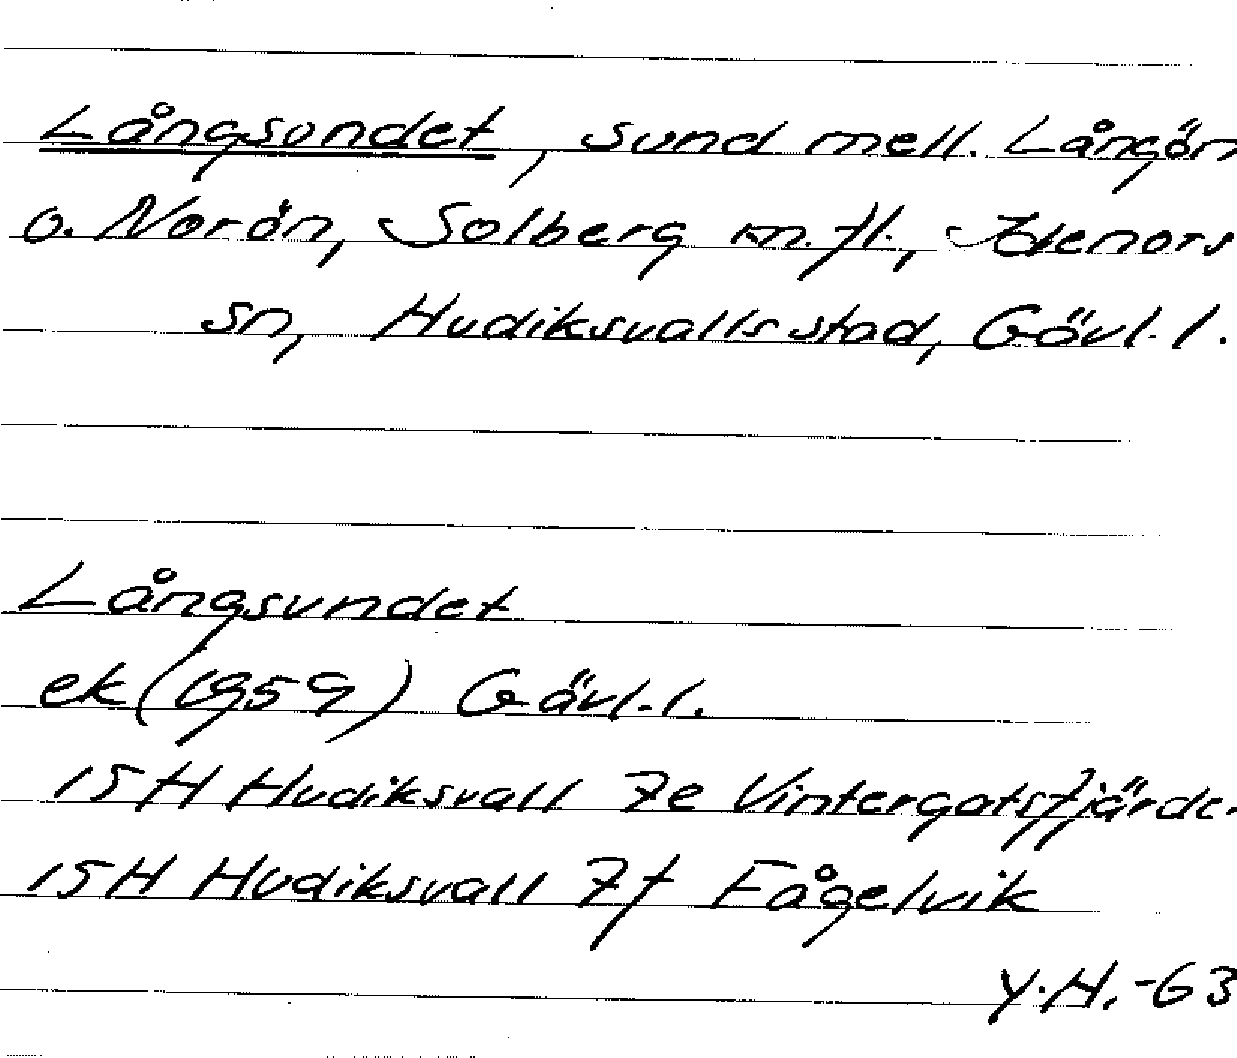 Långsundet, sund mell. Långön
o. Norön, Solberg m.fl., Idenors
sn, Hudiksvalls stad, Gävl.l.
Långsundet
ek (1959) Gävl.l.
15H Hudiksvall 7e Vintergatsfjärde
15H Hudiksvall 7f Fågelvik
Y.H.-63